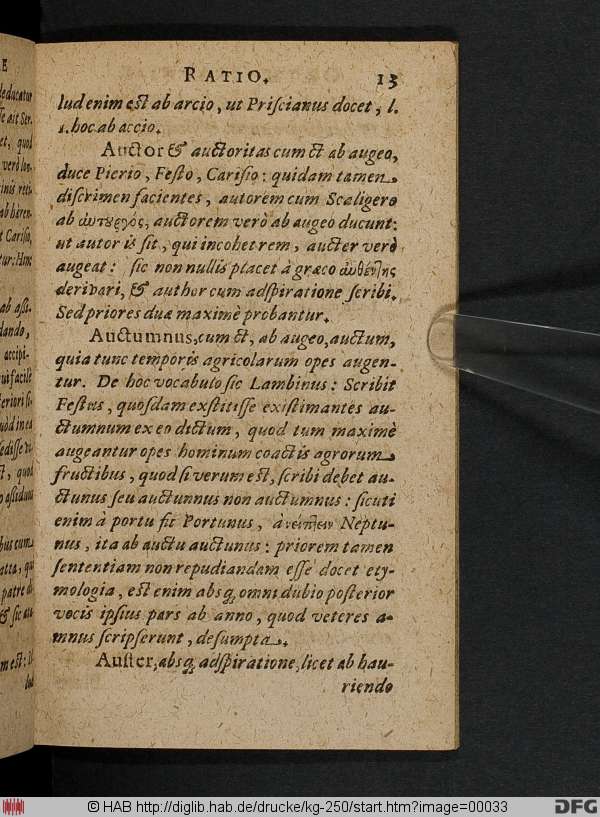 RATIO. 13
lud enim est ab arcio, ut Priscianus docet, l.
1. hoc ab accio.
Auctor & auctoritas cum ct ab augeo,
duce Pierio, Festo, Carisio: quidam tamen
discrimen facientes, autorem cum Scaligero
ab αὐτουργός, auctorem verò ab augeo ducunt:
ut autor is sit, qui incohet rem, aucter verò
augeat: sic nonnullis placet à græco αὐθέντης
derivari, & author cum adspiratione scribi.
Sed priores duæ maximè probantur.
Auctumnus, cum ct, ab augeo, auctum,
quia tunc temporis agricolarum opes augen-
tur. De hoc vocabulo sic Lambinus: Scribit
Festus, quosdam exstitisse existimantes au-
ctumnum ex eo dictum, quod tum maximè
augeantur opes hominum coactis agrorum
fructibus, quod si verum est, scribi debet au-
ctunus seu auctunnus non auctumnus: sicuti
enim à portu fit Portunus, à Neptu-
nus, ita ab auctu auctunus: priorem tamen
sententiam non repudiandam esse docet ety-
mologia, est enim absq; omni dubio posterior
vocis ipsius pars ab anno, quod veteres a-
mnus scripserunt, desumpta.
Auster, absq; adspiratione, licet ab hau-
riendo
© HAB http://diglib.hab.de/drucke/kg-250/start.htm?image=00033
DFG